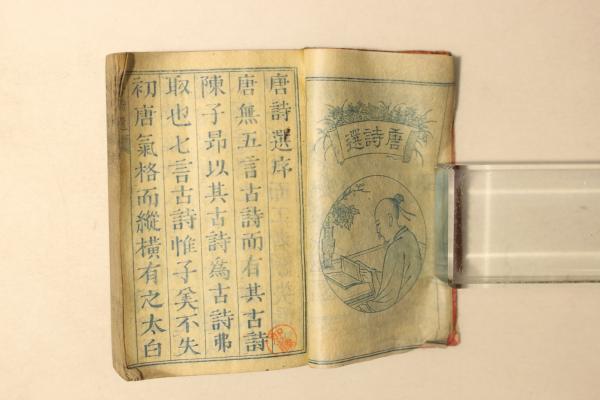 唐詩選
唐詩選序
唐無五言古詩而有其古詩
陳子昂以其古詩為古詩弗
取也七言古詩惟子美不失
初唐氣格而縱橫有之太白